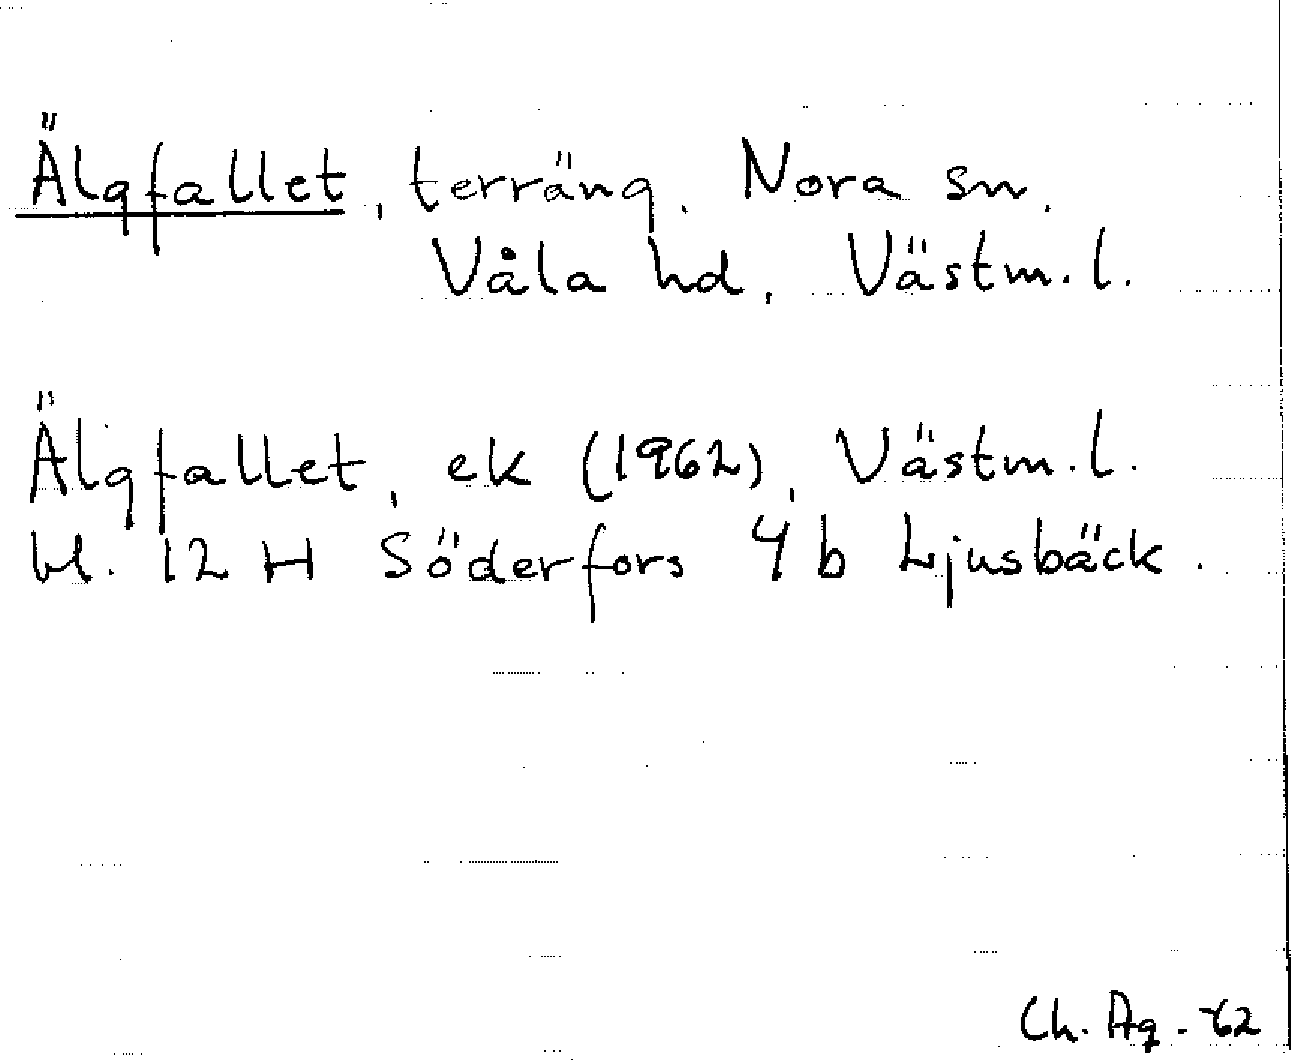 Älgfallet, terräng. Nora sn,
Våla hd, Västm. l.
Älgfallet, ek (1962), Västm. l.
bl. 12 H Söderfors 4 b Ljusbäck.
Ch. Ag. -62